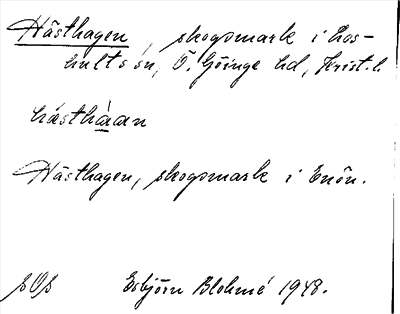 Hästhagen, skogsmark i Los-
hults sn, Ö. Göinge hd, Krist. l.
hásthàan
Hästhagen, skogsmark i Enön.
SOS Esbjörn Blohmé 1948.